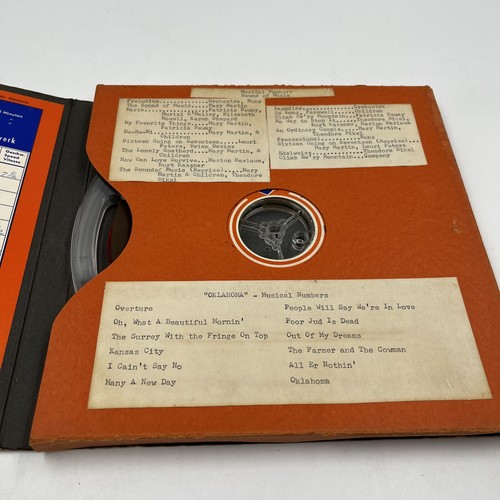 Musical Numbers
Sound of Music
Preludium..........Orchestra, Nuns
The Sound of Music....Mary Martin
Maria..............Patricia Neway,
Muriel O'Malley, Elizabeth
Howell, Karen Shepard
My Favorite Things....Mary Martin,
Patricia Neway
Do-Re-Mi...........Mary Martin, &
Children
Sixteen Going on Seventeen.....Lauri
Peters, Brian Davies
The Lonely Goatherd...Mary Martin, &
Children
How Can Love Survive...Marion Marlowe,
Kurt Kasznar
The Sound of Music (Reprise)....Mary
Martin & Children, Theodore
Bikel
Laendler...............Orchestra
So Long, Farewell......Children
Climb Ev'ry Mountain...Patricia Neway
No Way to Stop It.....Theodore Bikel,
Kurt Kasznar, Marion Marlowe
An Ordinary Couple....Mary Martin,
Theodore Bikel
Processional..........Nuns
Sixteen Going on Seventeen (Reprise)....
Mary Martin, Lauri Peters
Edelweiss.............Theodore Bikel
Climb Ev'ry Mountain...Company
"OKLAHOMA" - Musical Numbers
Overture
Oh, What A Beautiful Mornin'
The Surrey With the Fringe On Top
Kansas City
I Cain't Say No
Many A New Day
People Will Say We're In Love
Poor Jud Is Dead
Out Of My Dreams
The Farmer and The Cowman
All Er Nothin'
Oklahoma